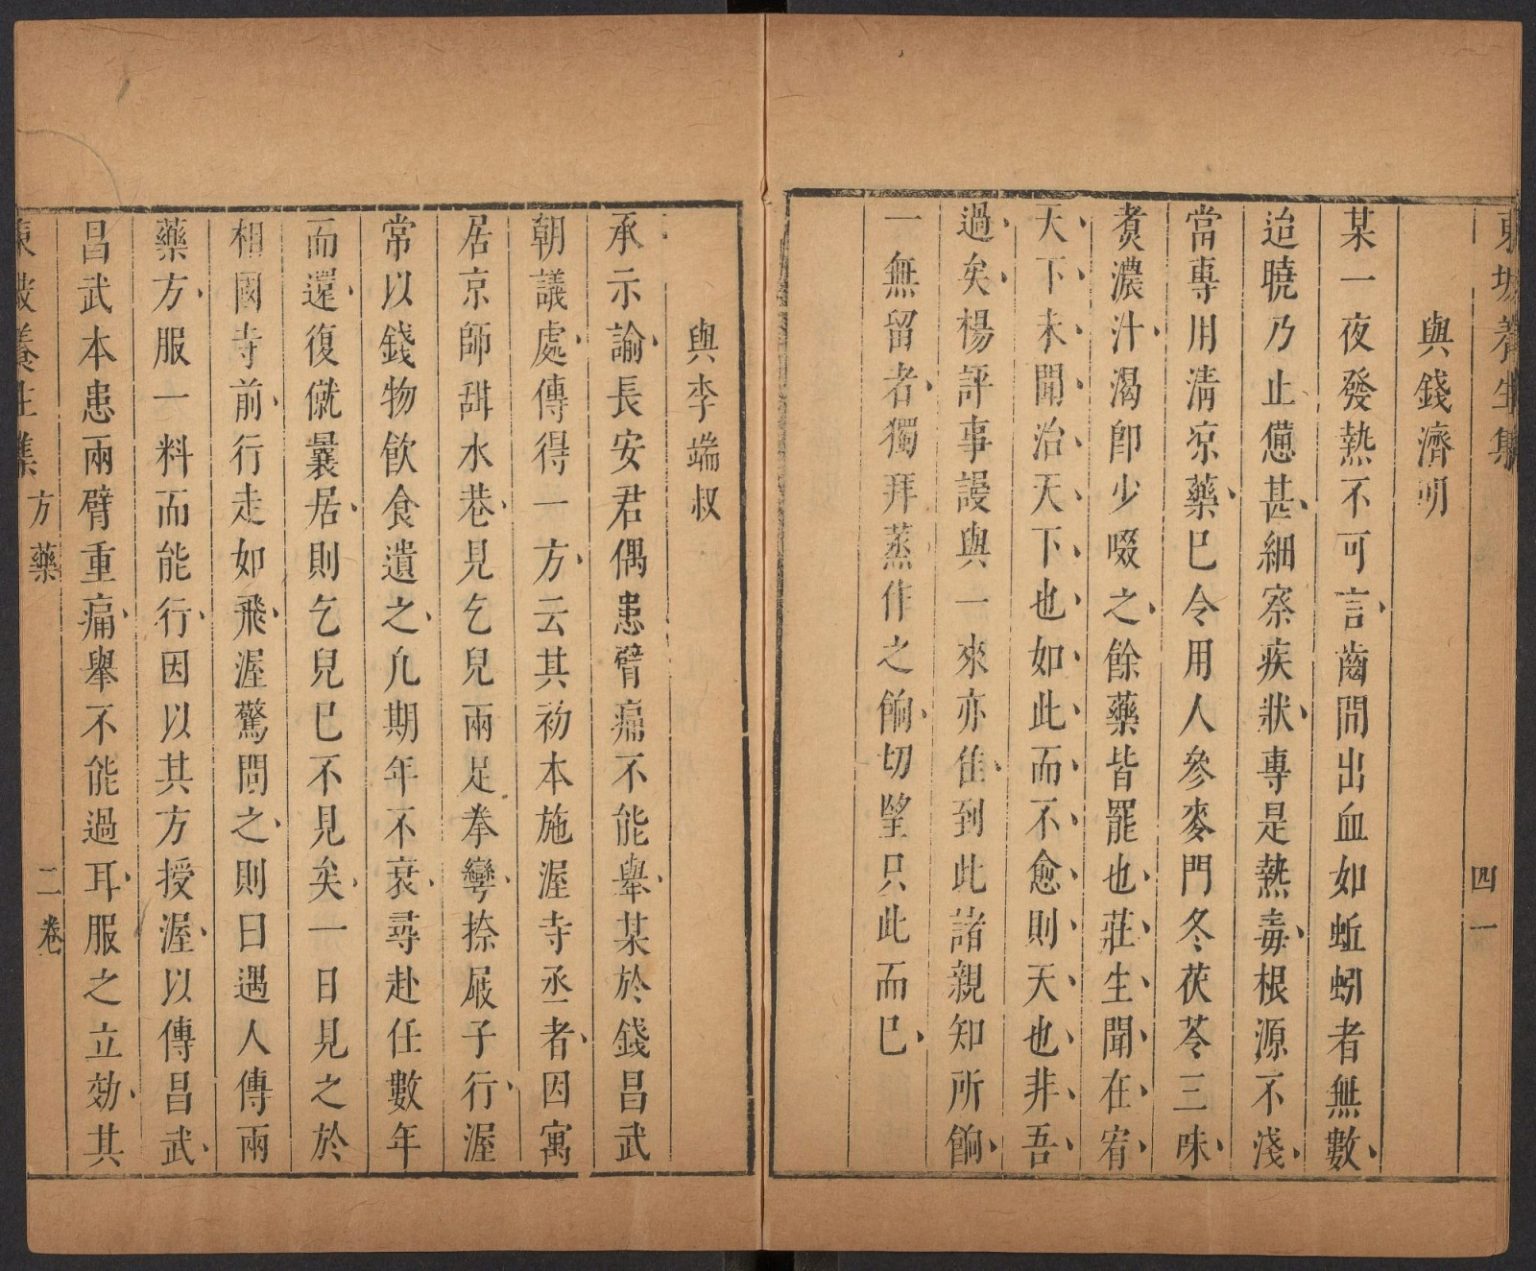 東坡養生集
四一
與錢濟明
某一夜發熱不可言、齒間出血如蚯蚓者無數、
迨曉乃止憊甚、細察疾狀、專是熱毒、根源不淺、
當專用清凉藥、已令用人參麥門冬茯苓三味、
煑濃汁、渴卽少啜之、餘藥皆罷也、莊生、聞在、宥、
天、下、未、聞、治、天、下、也、如、此、而、不、愈、則、天、也、非、吾、
過、矣、楊評事謾與一來亦佳、到此諸親知所餉、
一無留者、獨拜蒸作之餉、切望只此而已、
與李端叔
承示諭、長安君偶患臂痛不能舉、某於錢昌武
朝議處、傳得一方、云其初本施渥寺丞者、因寓
居京師甜水巷、見乞兒兩足拳攣、捺屐子行、渥
常以錢物飲食遺之、凡期年不衰、尋赴任數年
而還、復僦曩居、則乞兒已不見矣、一日見之於
相國寺前、行走如飛、渥驚問之、則曰遇人傳兩
藥方、服一料而能行、因以其方授渥、以傳昌武、
昌武本患兩臂重痛、舉不能過耳、服之立効、其
東坡養生集
方藥
二卷